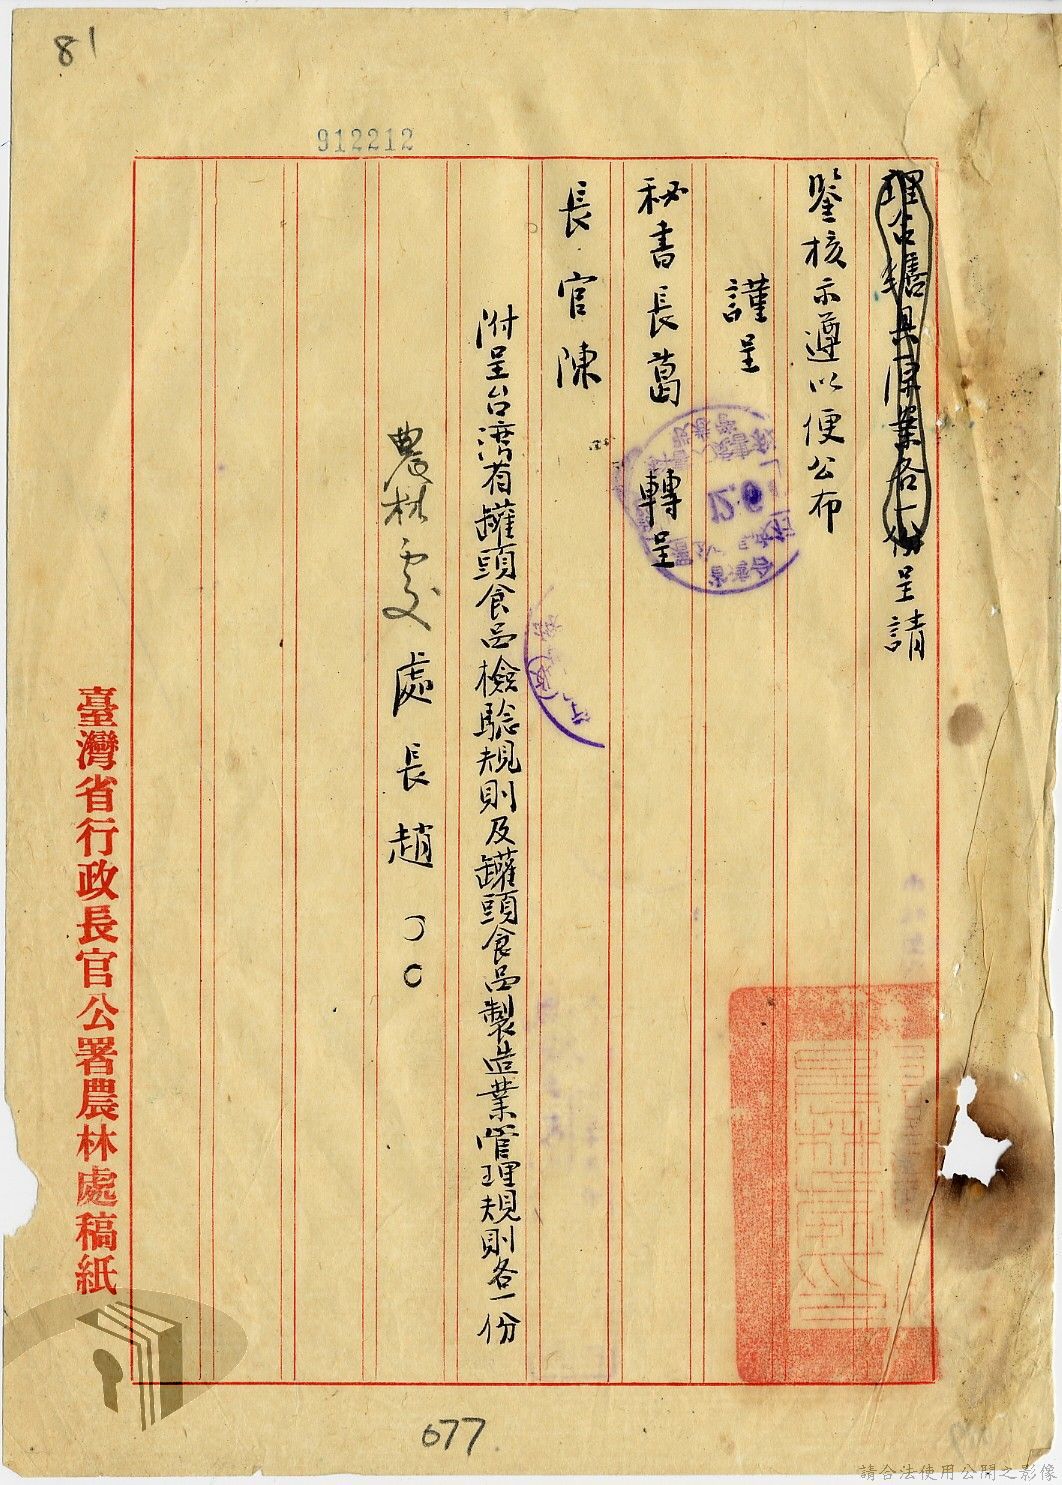 81
912212
理合檢具原案各一份呈請
鑒核示遵以便公布
謹呈
秘書長葛 轉呈
長官陳
附呈台灣省罐頭食品檢驗規則及罐頭食品製造業管理規則各一份
農林處 處長趙〇〇
臺灣省行政長官公署農林處稿紙
677
請合法使用公開之影像